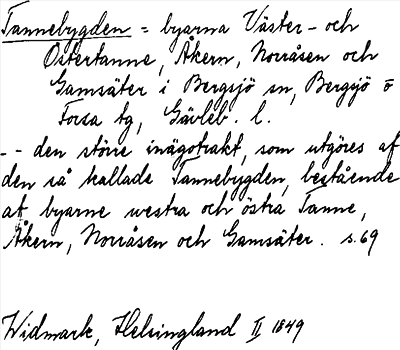 Tannebygden = byarna Väster- och
Östertanne, Åkern, Norråsen och
Gamsäter i Bergsjö sn, Bergsjö o
Forsa tg, Gävleb. l.
-- den större inägotrakt, som utgöres af
den så kallade Tannebygden, bestående
af byarne westra och östra Tanne,
Åkern, Norråsen och Gamsäter. s. 69
Widmark, Helsingland II 1849